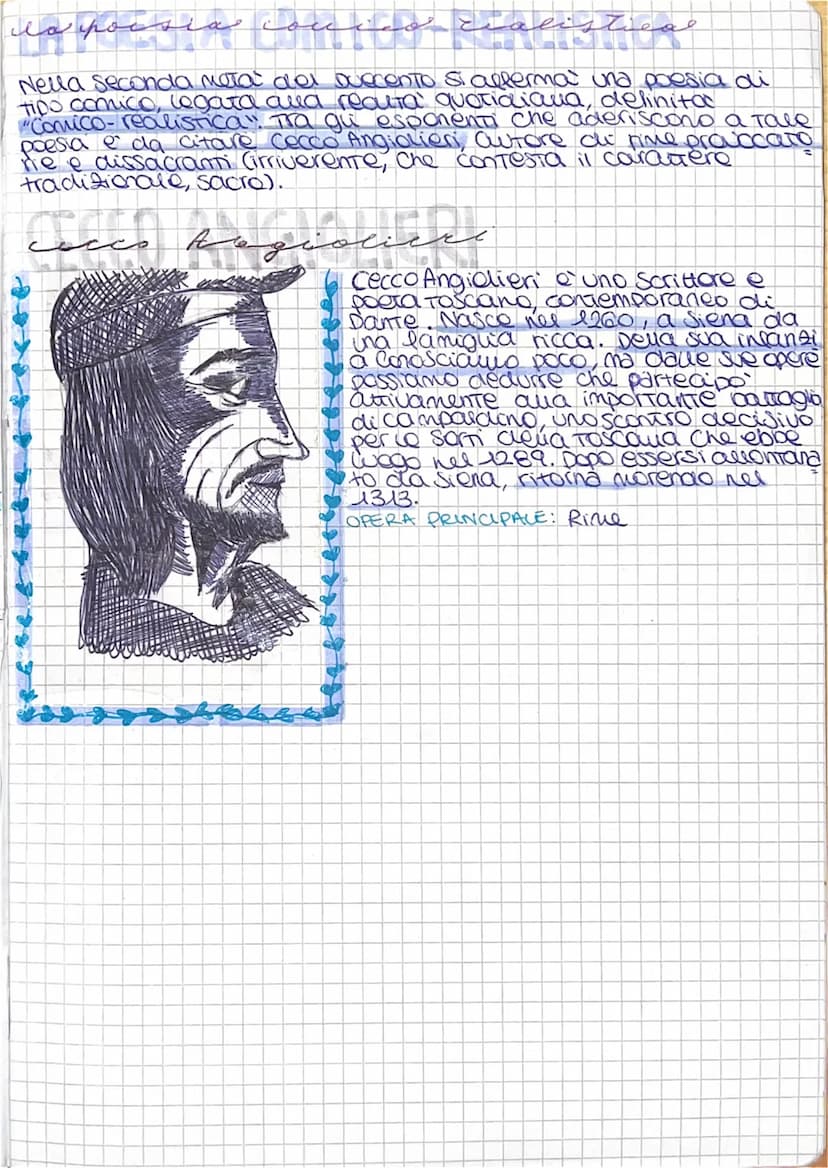 la poesia comico-realistica
LA POESIA COMICO-REALISTICA
Nella seconda metà del duecento si afferma una poesia di
tipo comico, legata alla realtà quotidiana, definita
"comico-realistica". Tra gli esponenti che aderiscono a tale
poesia è da citare Cecco Angiolieri, autore di rime provocato
rie e dissacranti (irriverente, che contesta il carattere
tradizionale, sacro).
CECCO ANGIOLIERI
cecco Angiolieri
Cecco Angiolieri è uno scrittore e
poeta toscano, contemporaneo di
Dante. Nasce nel 1260, a Siena da
una famiglia ricca. Della sua infanzi
a conosciamo poco, ma dalle sue opere
possiamo dedurre che partecipò
attivamente alla importante battaglia
di campaldino, uno scontro decisivo
per le sorti della Toscana che ebbe
luogo nel 1289. Dopo essersi allontana
to da Siena, ritorna morendo nel
1313.
OPERA PRINCIPALE: Rime